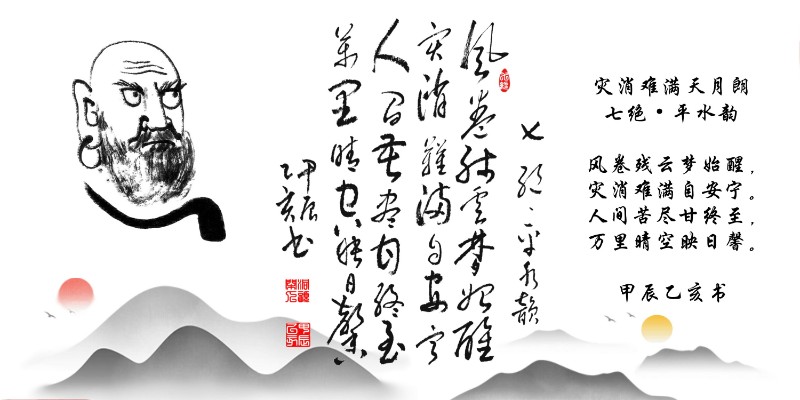 灾消难满天月朗
七绝·平水韵
风卷残云梦始醒，
灾消难满自安宁。
人间苦尽甘终至，
万里晴空映日馨。
甲辰乙亥书
七绝·平水韵
风卷残云梦始醒
灾消难满自安宁
人间苦尽甘终至
万里晴空映日馨
甲辰
乙亥书